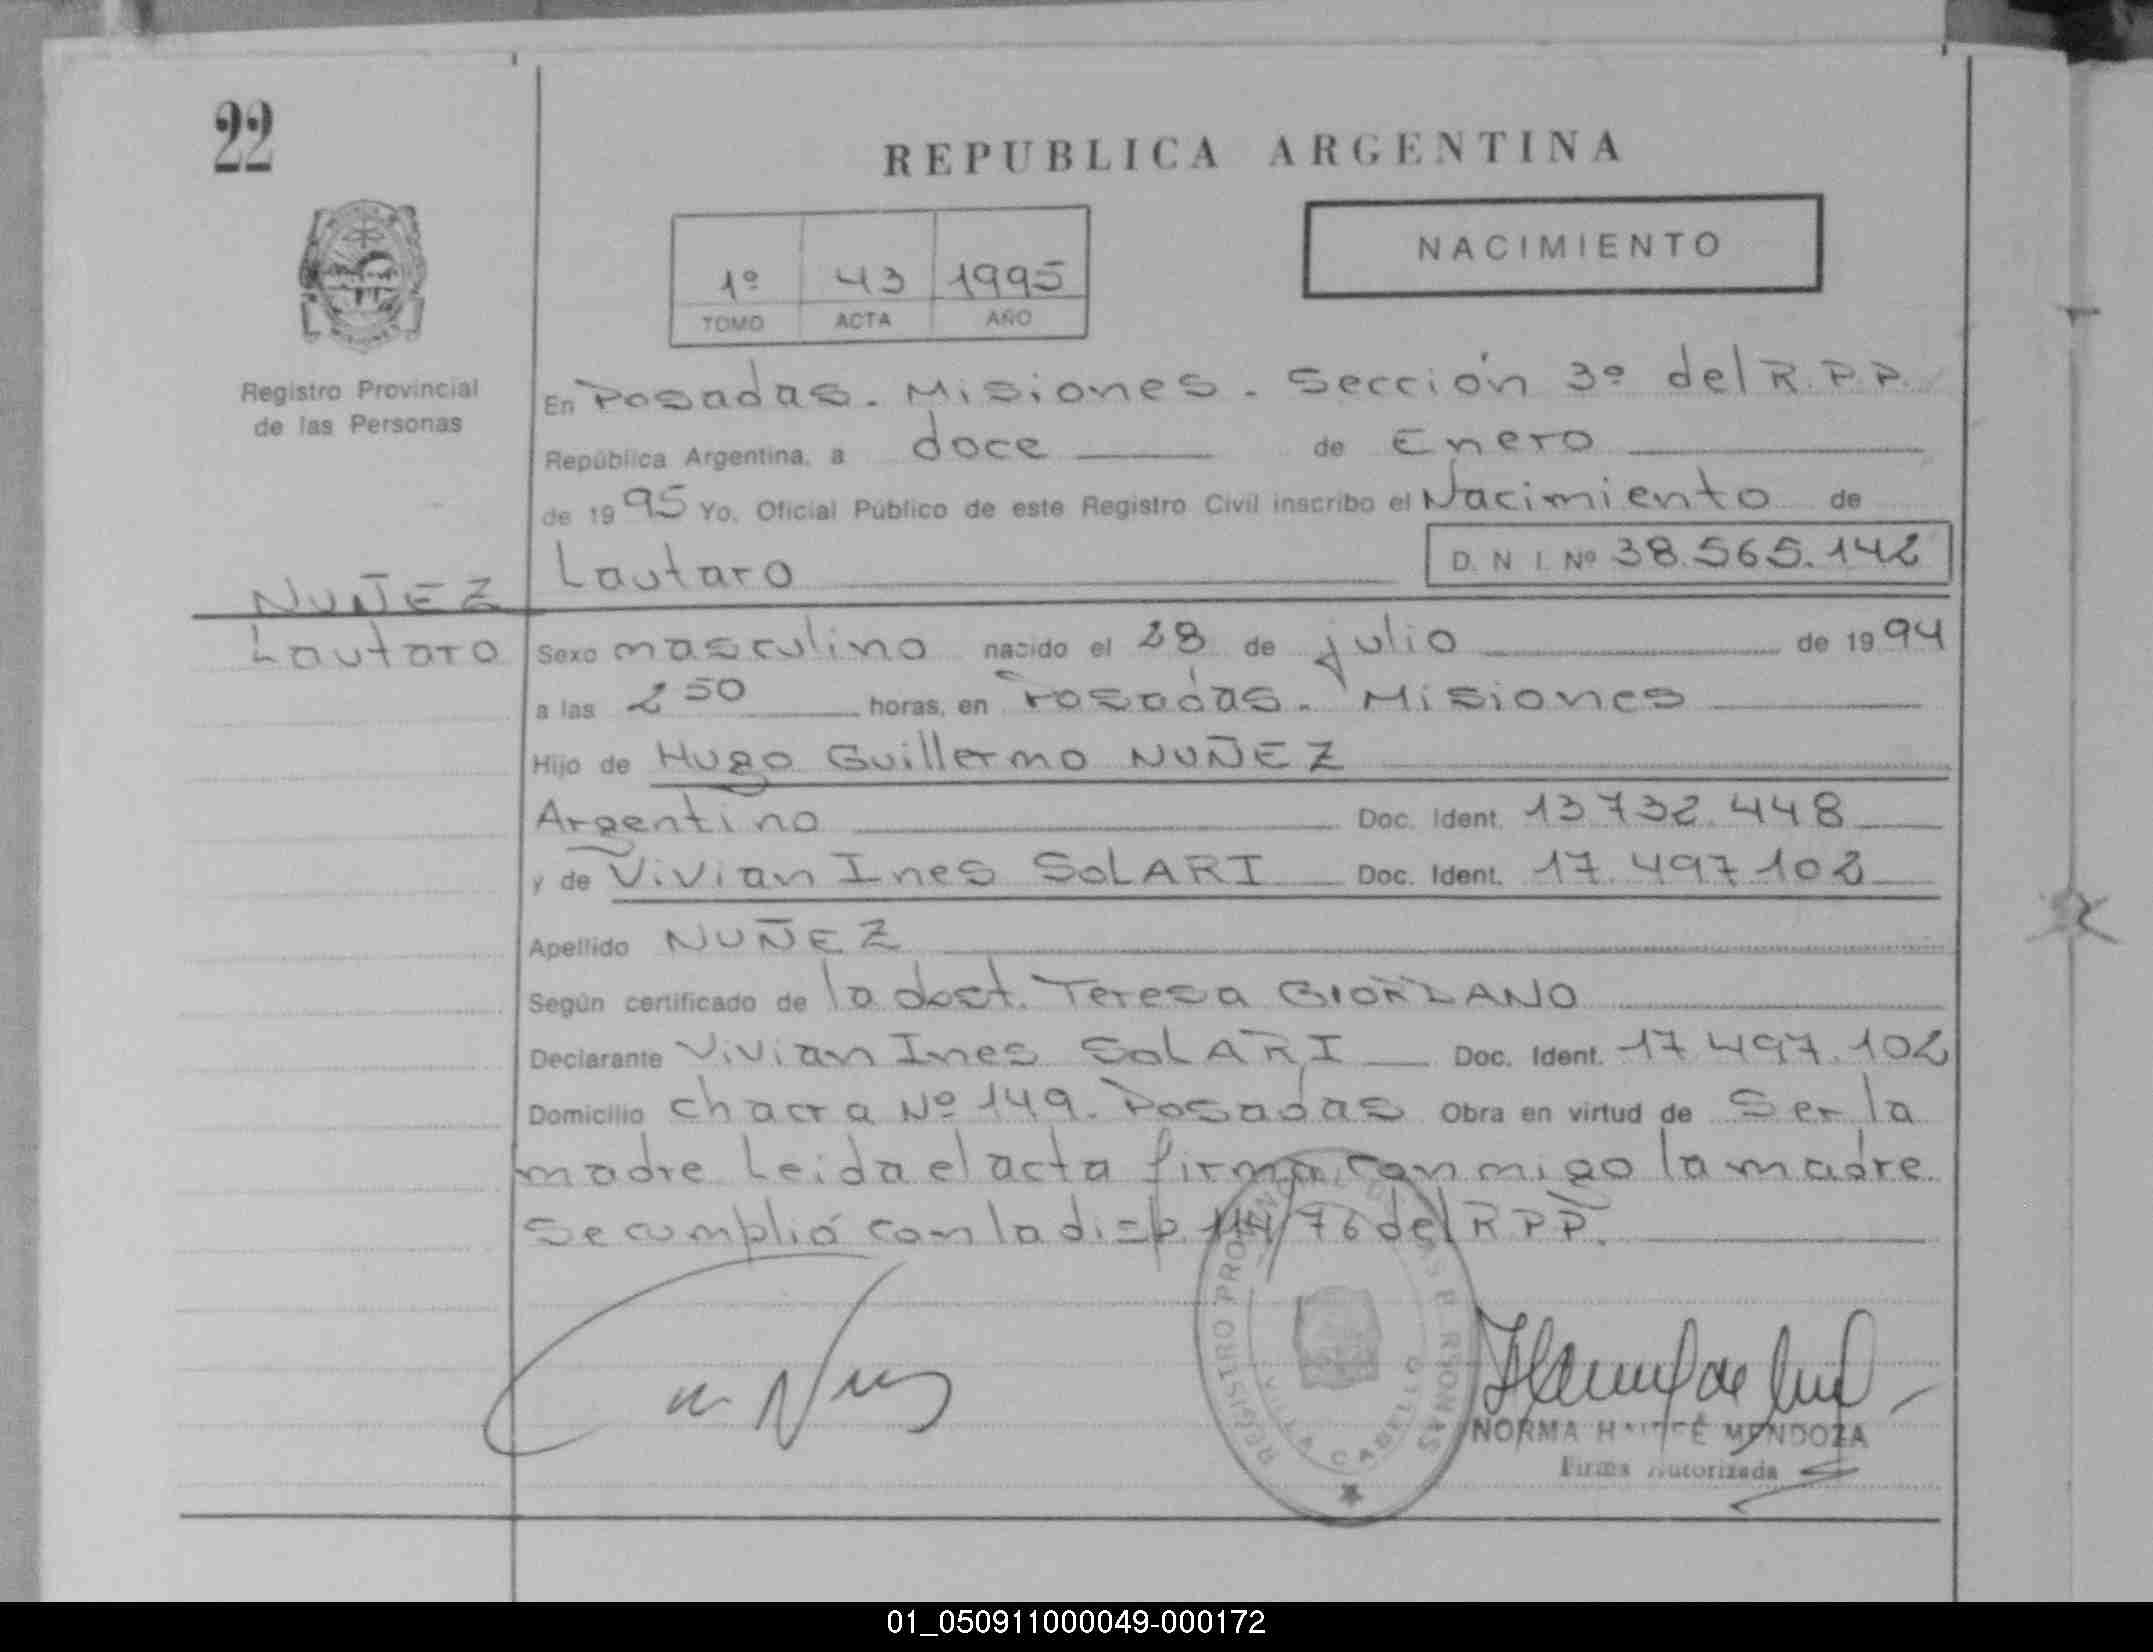 22
REPUBLICA ARGENTINA
NACIMIENTO
1º 43 1995
TOMO ACTA AÑO
Registro Provincial
de las Personas
En Posadas. Misiones. Sección 3º del R.P.P.
República Argentina, a doce de Enero
de 1995 Yo, Oficial Público de este Registro Civil inscribo el Nacimiento de
Lautaro D. N. I. Nº 38.565.142
NUÑEZ
Lautaro
Sexo masculino nacido el 28 de julio de 1994
a las 2 50 horas, en Posadas. Misiones
Hijo de Hugo Guillermo NUÑEZ
Argentino Doc. Ident. 13.732.448
y de Vivian Ines SOLARI Doc. Ident. 17.497.102
Apellido NUÑEZ
Según certificado de la doct. Teresa GIORDANO
Declarante Vivian Ines SOLARI Doc. Ident. 17.497.102
Domicilio chacra Nº 149. Posadas Obra en virtud de Ser la
madre Leida el acta firma conmigo la madre.
Se cumplió con la disp. 114/76 del R.P.P.
REGISTRO PROVINCIAL DE LAS PERSONAS
VILLA CABELLO
NORMA HAYDÉE MENDOZA
Firma Autorizada
01_050911000049-000172